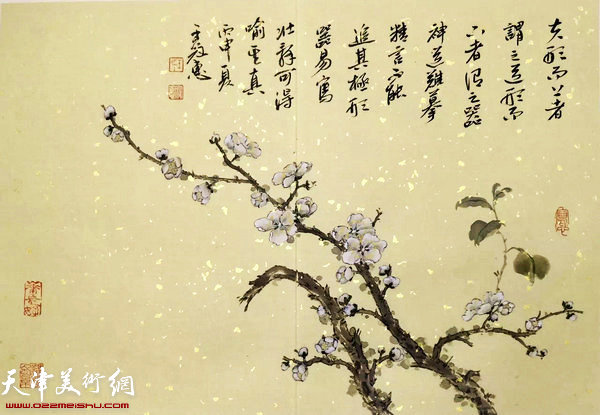 夫形而上者
謂之道形而
下者謂之器
神道難摹
精言不能
追其極形
器易寫
壯辭可得
喻其真
丙申夏
天津美術網
www.022meishu.com